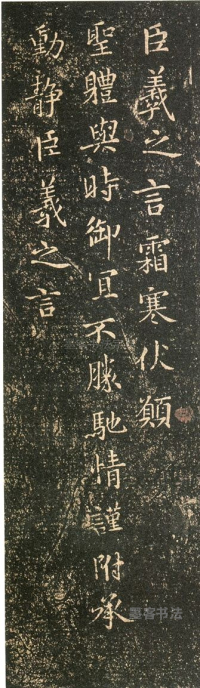 臣羲之言霜寒伏願
聖體與時御宜不勝馳情謹附承
動静臣羲之言
墨客书法